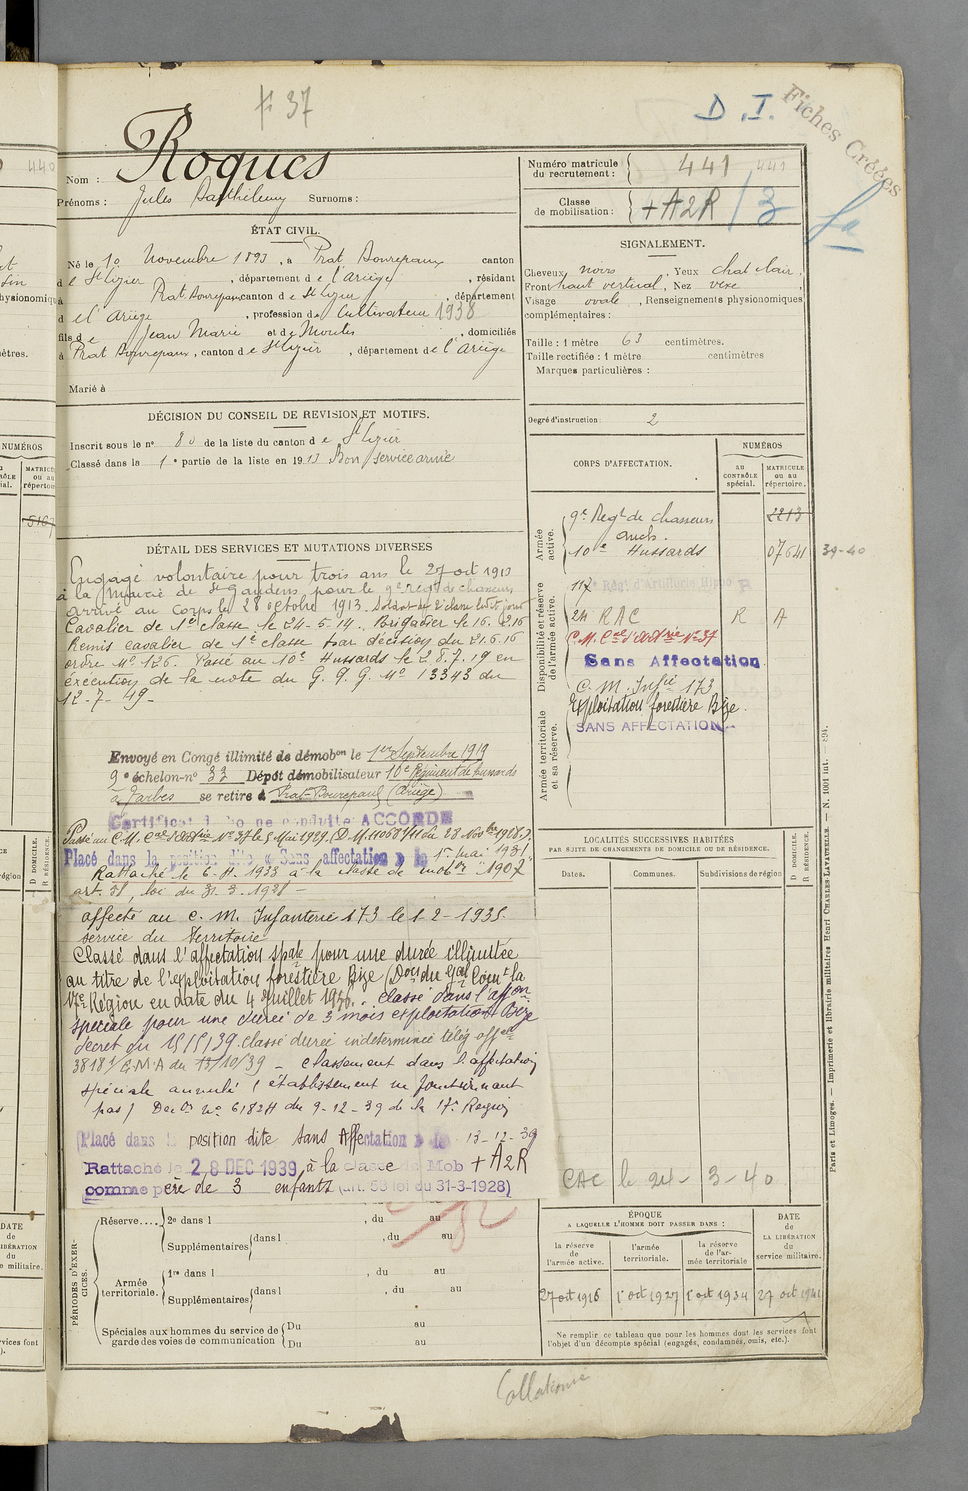 # 37
D.I.
Fiches Créées
Nom : Roques
Prénoms : Jules Barthélemy Surnoms :
Numéro matricule du recrutement : 441
Classe de mobilisation : +A2R/3
ÉTAT CIVIL.
Né le 10 Novembre 1893, à Prat Bonrepaux canton
de St Lizier, département de l'Ariège, résidant
à Prat Bonrepaux canton de St Lizier, département
d el' Ariège, profession de Cultivateur 1938
fils de Jean Marie et de Moulis, domiciliés
à Prat Bonrepaux, canton de St Lizier, département de l'Ariège
Marié à
SIGNALEMENT.
Cheveux noirs. Yeux chat clair,
Front haut vertical, Nez vexe,
Visage ovale, Renseignements physionomiques
complémentaires :
Taille : 1 mètre 63 centimètres.
Taille rectifiée : 1 mètre centimètres
Marques particulières :
Degré d'instruction : 2
DÉCISION DU CONSEIL DE REVISION ET MOTIFS.
Inscrit sous le n° 80 de la liste du canton de St Lizier
Classé dans la 1e partie de la liste en 1913 Bon service armé
DÉTAIL DES SERVICES ET MUTATIONS DIVERSES
Engagé volontaire pour trois ans le 27 oct 1913
à la mairie de St Gaudens pour le 9e régt de chasseurs
arrivé au corps le 28 octobre 1913. Soldat de 2e classe ledit jour
Cavalier de 1e classe le 24-5-14. Brigadier le 16.2.16
Remis cavalier de 1e classe par décision du 21.6.16
ordre No 126. Passé au 10e Hussards le 28.7.19 en
éxécution de la note du G.Q.G. No 13343 du
12-7-19-
Envoyé en Congé illimité de démobon le 1er Septembre 1919
9e échelon-n° 33 Dépôt démobilisateur 10e Régiment de hussards
à Tarbes se retire à Prat-Bonrepaux (Ariège)
Certificat de bonne conduite ACCORDÉ
Passé au C.M. Cal d'Artie No 37 le 5 Mai 1929. (D.M. 11068 du 28 Novbre 1928).
Placé dans la position dite « Sans affectation » le 1er mai 1931
Rattaché le 6-11-1933 à la classe de mobon 1907
art. 58, loi du 31-3-1928-
affecté au C.M. Infanterie 173 le 1-2-1935.
service du Territoire
Classé dans l'affectation spale pour une durée illimitée
au titre de l'exploitation forestière Bize (Don du Gal Comt la
17e Région en date du 4 Juillet 1936. Classé dans l'affon
spéciale pour une durée de 3 mois exploitation Bize
decret du 15/5/39. Classé durée indéterminée télég offel
38187/E.M.A du 13/10/39 - Classement dans l'affectation
spéciale annulé (établissement ne fonctionnant
pas) Don No 6182H du 9-12-39 de la 17e Région
Placé dans la position dite Sans Affectation le 13-12-39
Rattaché le 28 DEC 1939, à la classe de Mob +A2R
comme père de 3 enfants (art. 58 loi du 31-3-1928)
CORPS D'AFFECTATION.
NUMÉROS
au CONTRÔLE spécial.
MATRICULE ou au répertoire.
Armée active.
9e Regt de chasseurs 2213
10e Hussards 07641 39-40
Disponibilité et réserve de l'armée active.
117e Régt d'Artillerie Hippo R
24 RAC R A
C.M. Cal d'Artrie No 37
Sans Affectation
C.M. Infie 173
Exploitation forestière Bize.
SANS AFFECTATION
Armée territoriale et sa réserve.
LOCALITÉS SUCCESSIVES HABITÉES
PAR SUITE DE CHANGEMENTS DE DOMICILE OU DE RÉSIDENCE.
Dates. Communes. Subdivisions de région
D DOMICILE. R RÉSIDENCE.
CAC le 24-3-40
PÉRIODES D'EXERCICES.
Réserve.... 2e dans l , du au
Supplémentaires dans l du au
Armée territoriale. 1re dans l , du au
Supplémentaires dans l , du au
Spéciales aux hommes du service de garde des voies de communication Du au
Du au
ÉPOQUE
A LAQUELLE L'HOMME DOIT PASSER DANS :
la réserve de l'armée active. l'armée territoriale. la réserve de l'armée territoriale
DATE de LA LIBÉRATION du service militaire.
27 oct 1916 1er oct 1927 1er oct 1934 27 oct 1941
Ne remplir ce tableau que pour les hommes dont les services font
l'objet d'un décompte spécial (engagés, condamnés, omis, etc.).
Collationné
Paris et Limoges. — Imprimerie et librairie militaires Henri CHARLES-LAVAUZELLE. — N. 1001 int.